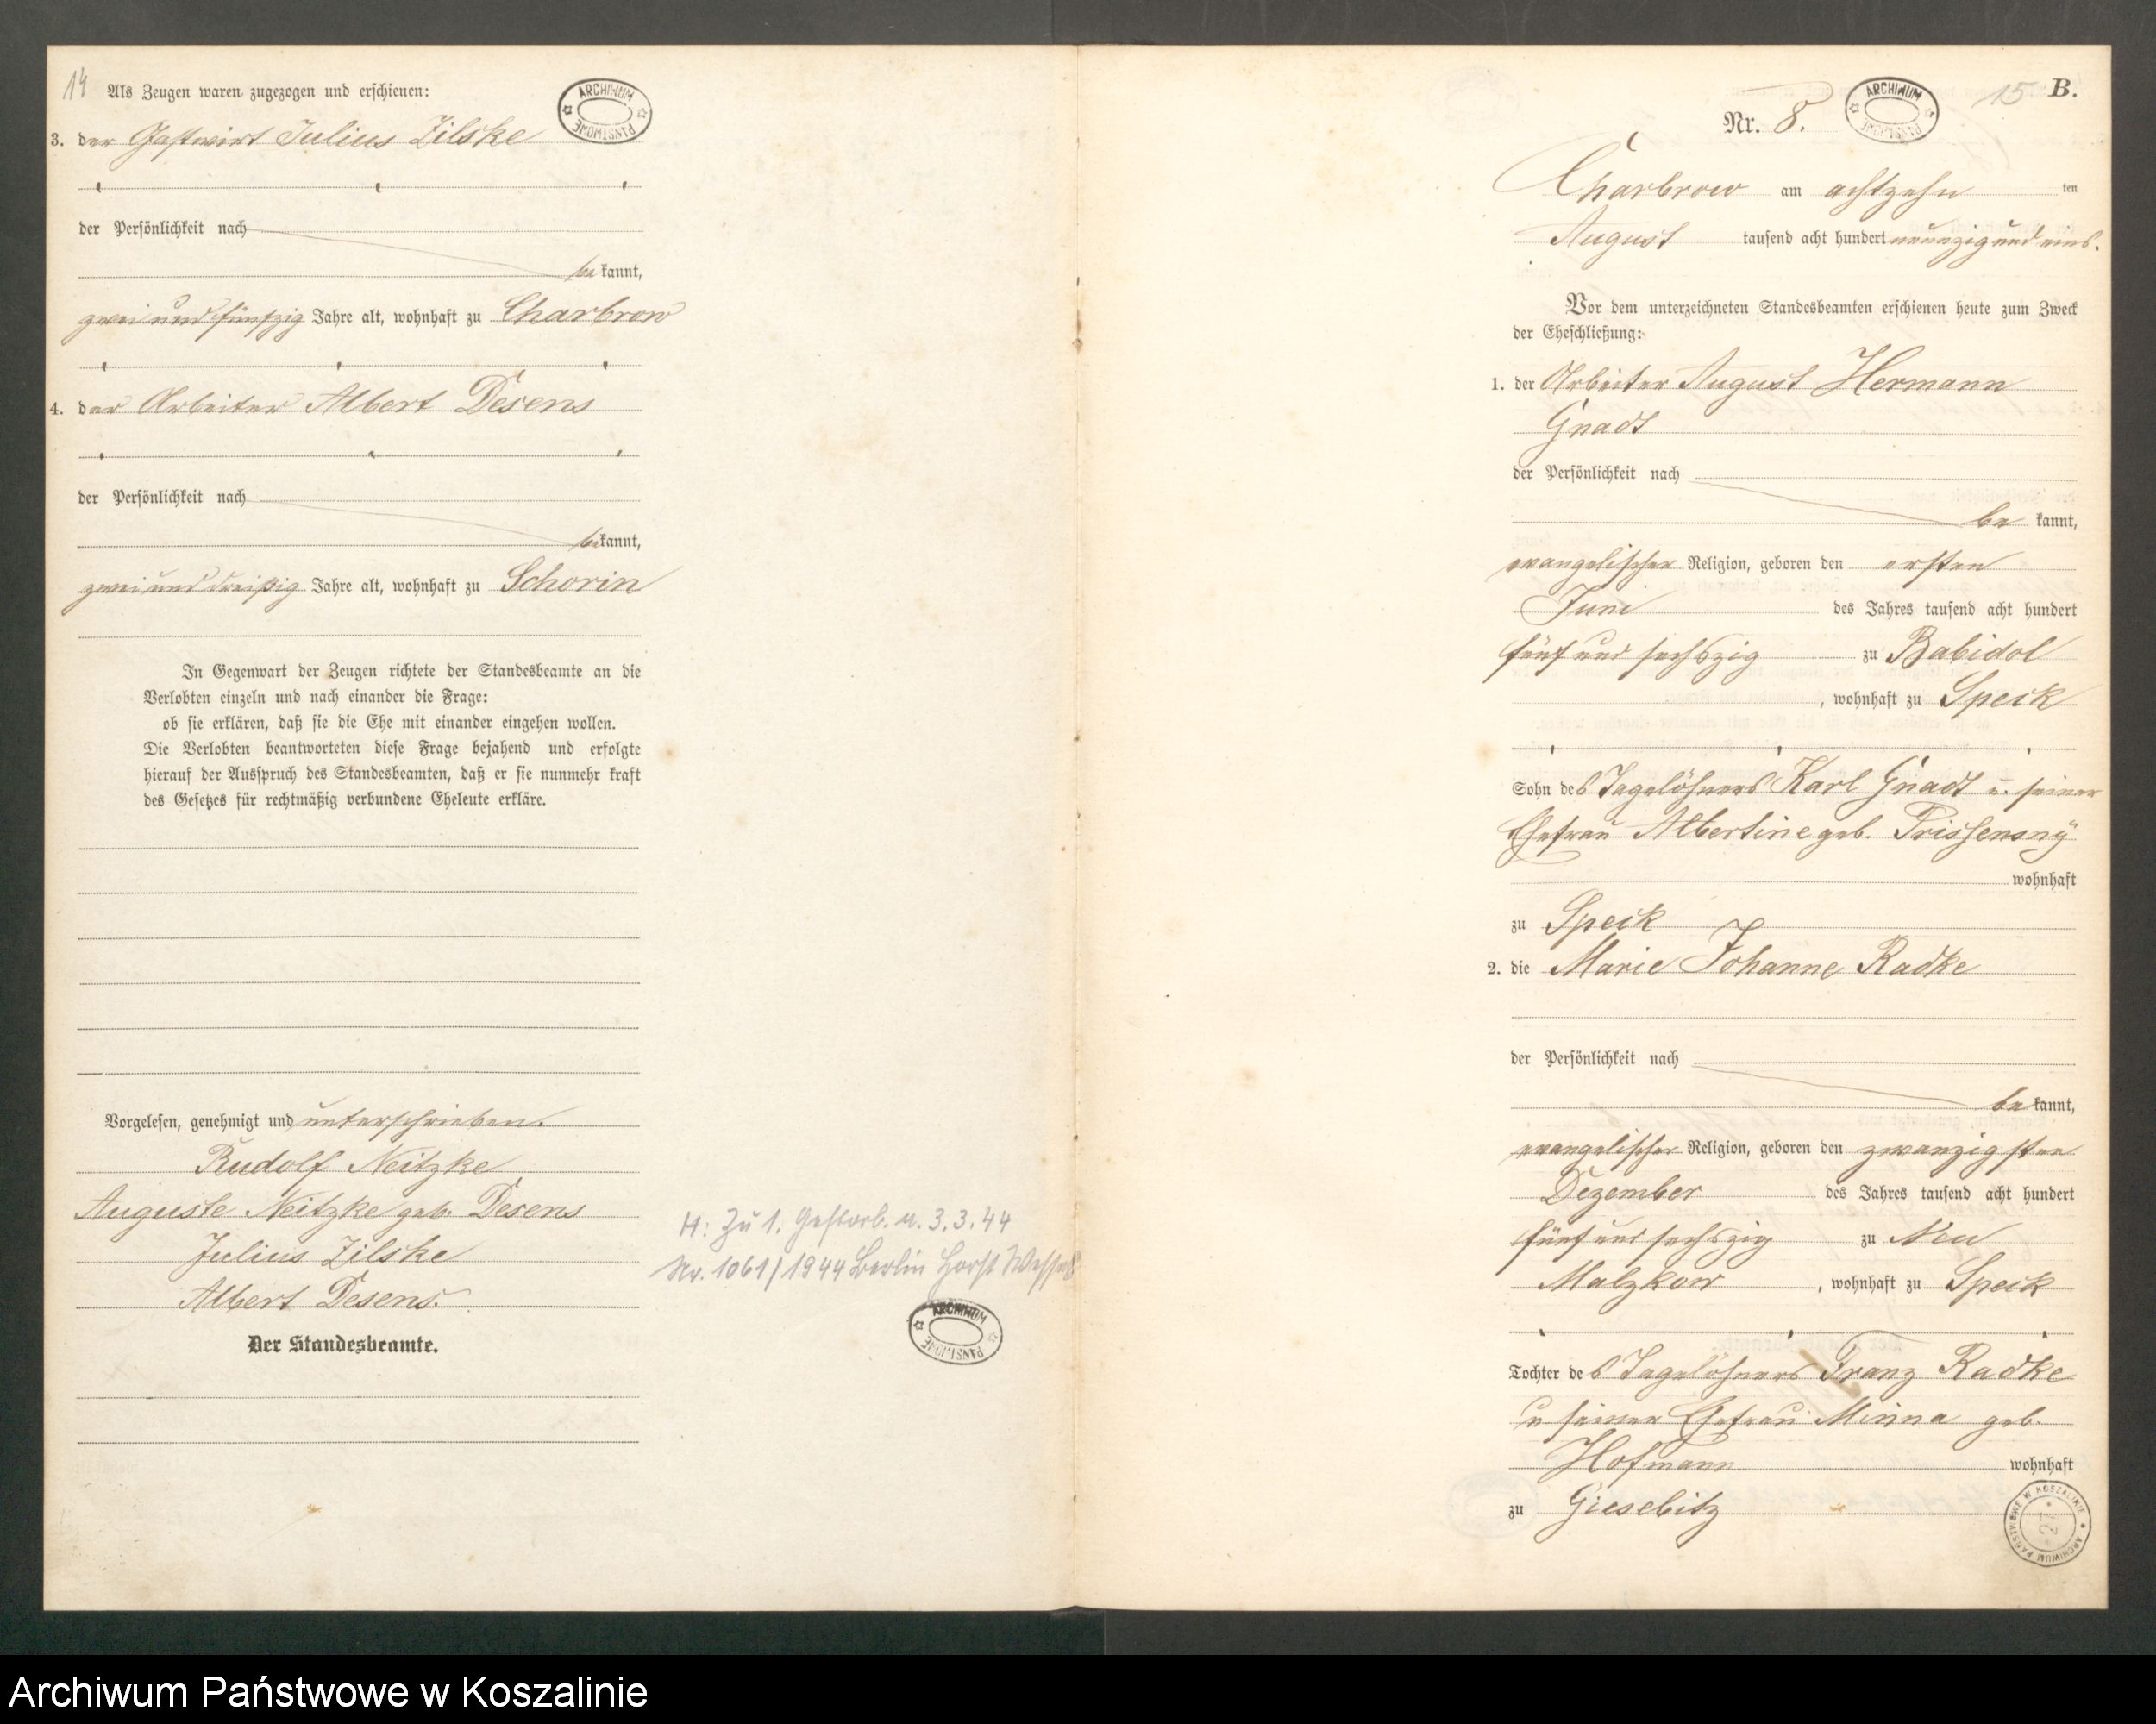 14
Als Zeugen waren zugezogen und erschienen:
ARCHIWUM PAŃSTWOWE
3. der Gastwirt Julius Zilske
der Persönlichkeit nach
be kannt,
zwei und fünfzig Jahre alt, wohnhaft zu Charbrow
4. der Arbeiter Albert Desens
der Persönlichkeit nach
bekannt,
zwei und dreißig Jahre alt, wohnhaft zu Schorin
In Gegenwart der Zeugen richtete der Standesbeamte an die
Verlobten einzeln und nach einander die Frage:
ob sie erklären, daß sie die Ehe mit einander eingehen wollen.
Die Verlobten beantworteten diese Frage bejahend und erfolgte
hierauf der Ausspruch des Standesbeamten, daß er sie nunmehr kraft
des Gesetzes für rechtmäßig verbundene Eheleute erkläre.
Vorgelesen, genehmigt und unterschrieben.
Rudolf Neitzke
Auguste Neitzke geb. Desens
Julius Zilske
Albert Desens.
Der Standesbeamte.
H: Zu 1. gestorb. a. 3.3.44
Nr. 1061/1944 Berlin Horst Wessel
ARCHIWUM PAŃSTWOWE
15 B.
Nr. 8.
ARCHIWUM PAŃSTWOWE
Charbrow am achtzehn ten
August tausend acht hundert neunzig und eins.
Vor dem unterzeichneten Standesbeamten erschienen heute zum Zweck
der Eheschließung:
1. der Arbeiter August Hermann
Gnadt
der Persönlichkeit nach
be kannt,
evangelischer Religion, geboren den ersten
Juni des Jahres tausend acht hundert
fünf und sechszig zu Babidol
, wohnhaft zu Speck
Sohn des Tagelöhners Karl Gnadt u. seiner
Ehefrau Albertine geb.
wohnhaft
zu Speck
2. die Marie Johanne Radke
der Persönlichkeit nach
be kannt,
evangelischer Religion, geboren den zwanzigsten
Dezember des Jahres tausend acht hundert
fünf und sechszig zu Neu
Malzkow, wohnhaft zu Speck
Tochter des Tagelöhners Franz Radke
u seiner Ehefrau Minna geb.
Hofmann wohnhaft
zu Giesebitz
ARCHIWUM PAŃSTWOWE W KOSZALINIE
27
Archiwum Państwowe w Koszalinie